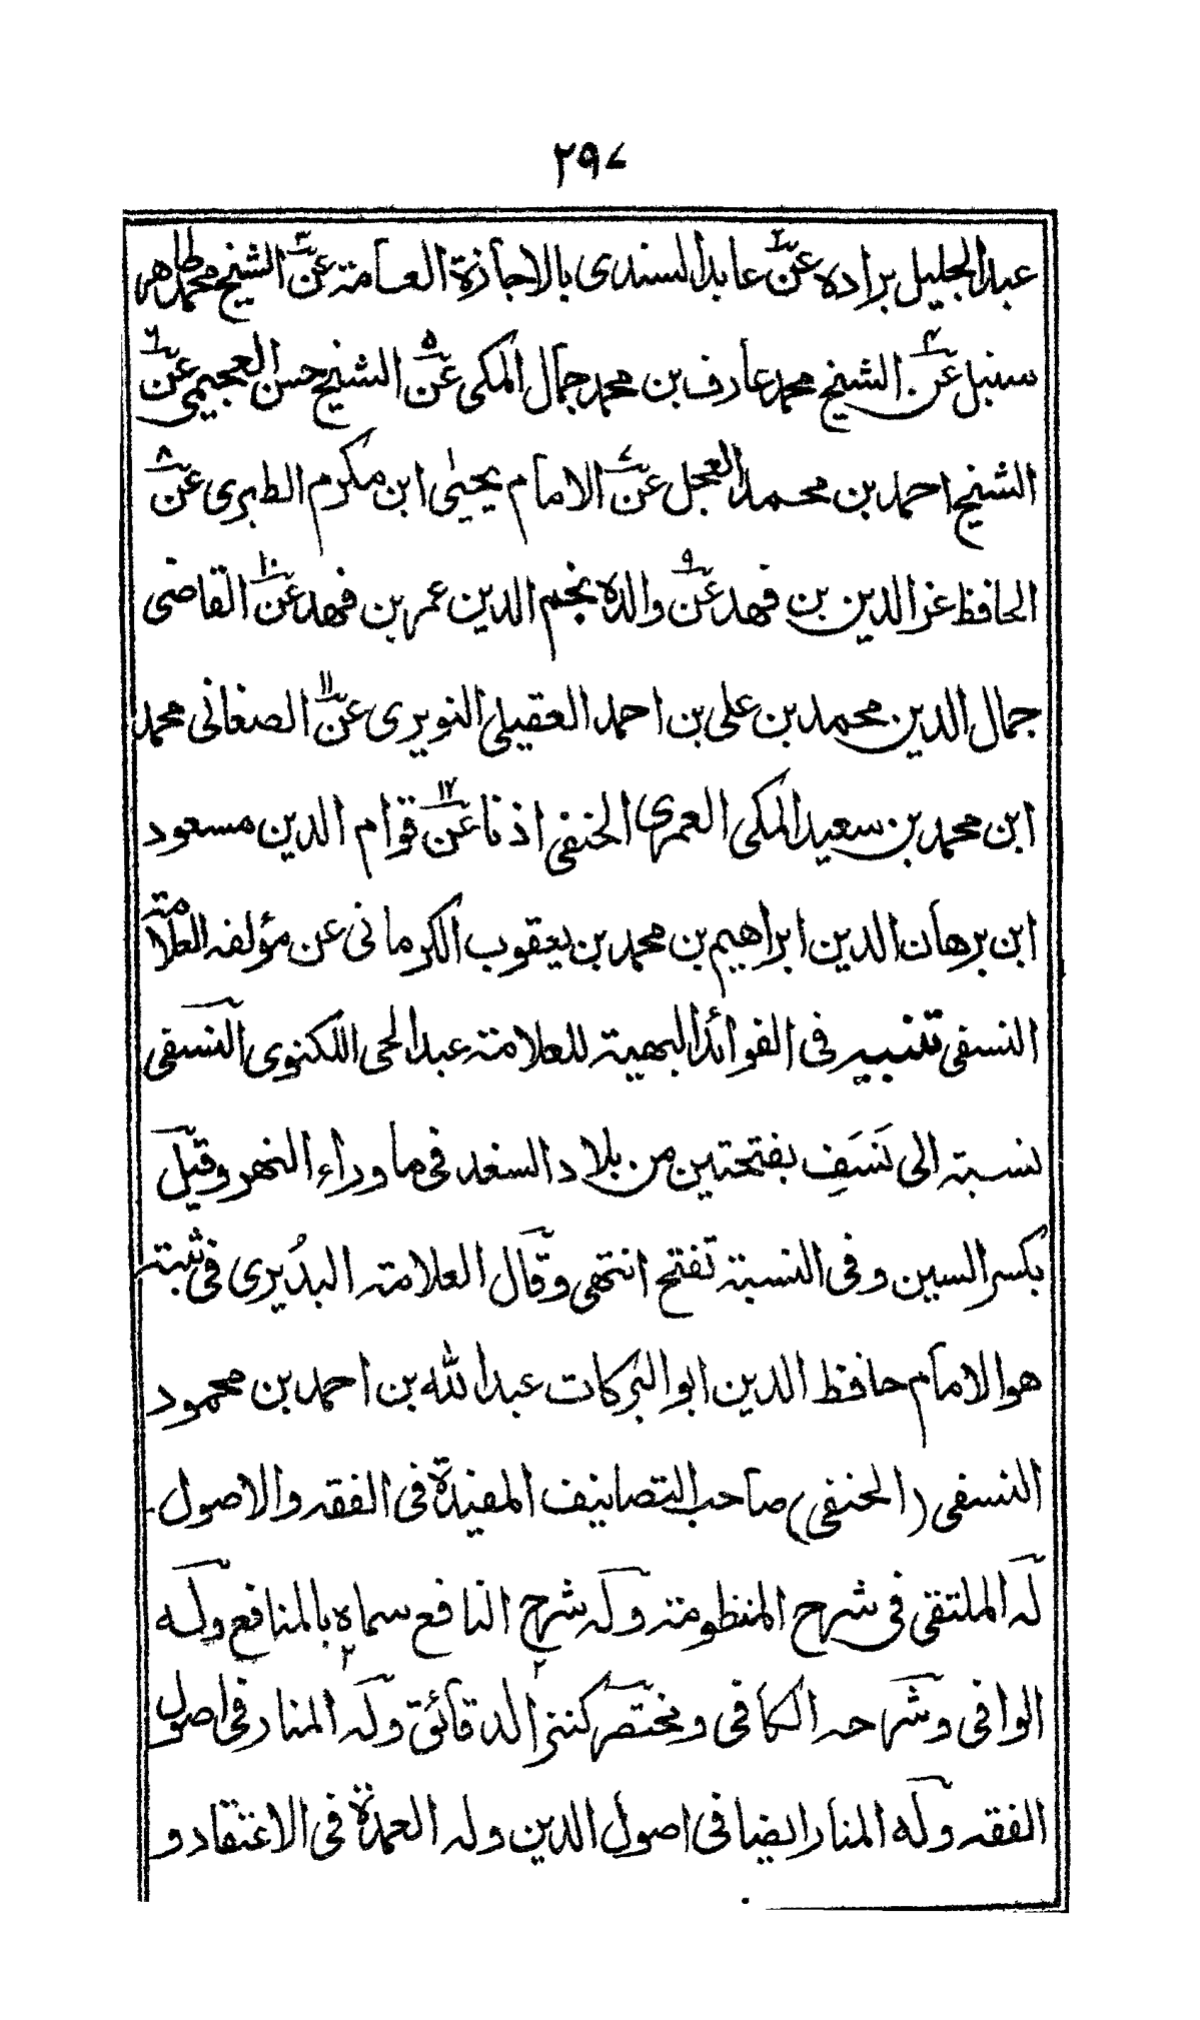 ۲۹۷
عبد الجليل براده عن۲ عابد السندى بالاجازة العامة عن۳ الشيخ محمد طاهر
سنبل عن۴ الشيخ محمد عارف بن محمد جمال المكى عن۵ الشيخ حسن العجيمى عن۶
الشيخ احمد بن محمد العجل عن۷ الامام يحيىٰ ابن مكرم الطبرى عن۸
الحافظ عز الدين بن فهد عن۹ والده نجم الدين عمر بن فهد عن۱۰ القاضى
جمال الدين محمد بن على بن احمد العقيلى النويرى عن۱۱ الصغانى محمد
ابن محمد بن سعيد المكى العمرى الحنفى اذنا عن۱۲ قوام الدين مسعود
ابن برهان الدين ابراهيم بن محمد بن يعقوب الكرمانى عن مؤلفه العلامة
النسفى تنبيه فى الفوائد البهية للعلامة عبد الحى اللكنوى النسفى
نسبة الى نَسَفِ بفتحتين من بلاد السغد فى ما وراء النهر وقيل
بكسر السين وفى النسبة تفتح انتهى وقال العلامة البدُيرى فى ثبته
هو الامام حافظ الدين ابو البركات عبد الله بن احمد بن محمود
النسفى (الحنفى) صاحب التصانيف المفيدة فى الفقه والاصول
له الملتقى فى شرح المنظومة وله شرح النافع سماه بالمنافع وله
الوافى وشرحه الكافى ومختصر كنز۲ الدقائق وله۲ المنار فى اصول
الفقه وله المنار ايضا فى اصول الدين وله العمدة فى الاعتقاد و